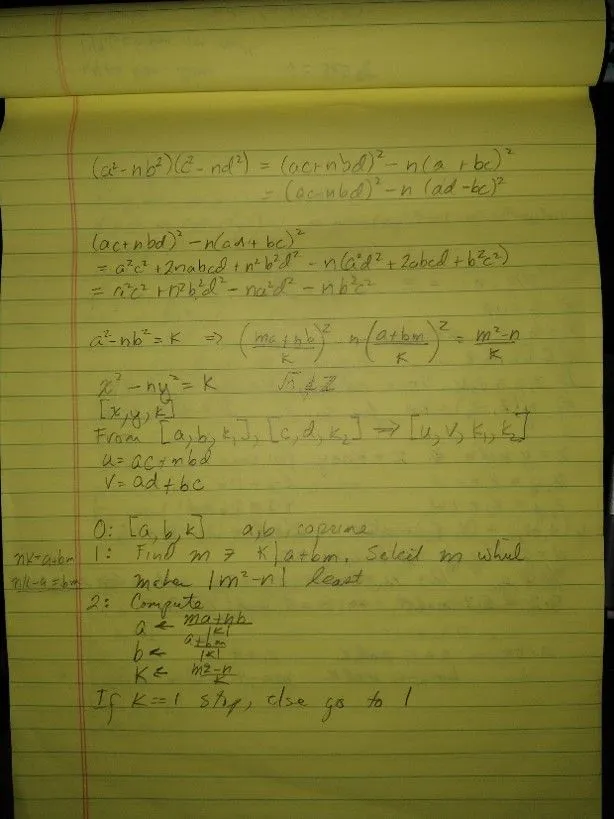 (a²-nb²)(c²-nd²) = (ac+nbd)² - n(a + bc)²
= (ac-nbd)² - n (ad-bc)²
(ac+nbd)² - n(ad+bc)²
= a²c² + 2nabcd + n²b²d² - n(a²d² + 2abcd + b²c²)
= a²c² + n²b²d² - na²d² - nb²c²
a²-nb² = k ⇒ ((ma+nb)/k)² - n((a+bm)/k)² = (m²-n)/k
x² - ny² = k √n ∉ Z
[x, y, k]
From [a, b, k₁], [c, d, k₂] ⇒ [u, v, k₁, k₂]
u = ac + nbd
v = ad + bc
0: [a, b, k] a, b coprime
1: Find m ∋ k | a+bm. Select m which
makes |m²-n| least
nk=a+bm
nk-a=bm
2: Compute
a ← (ma+nb)/|k|
b ← (a+bm)/|k|
k ← (m²-n)/k
If k==1 stop, else go to 1